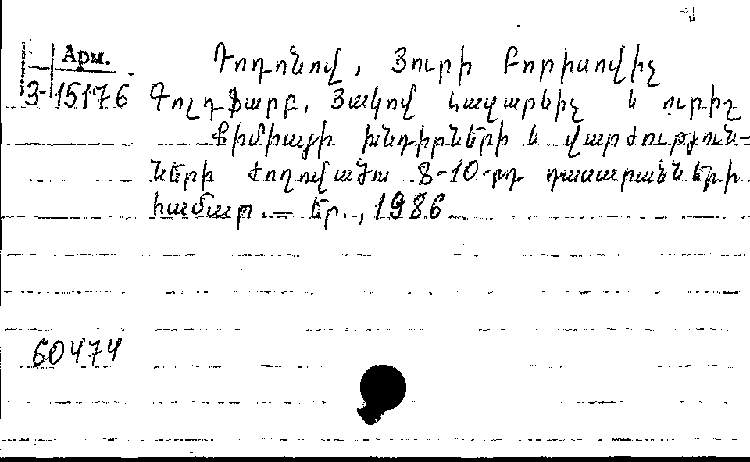 Арм.
3-15176
Դոդոնով, Յուրի Բորիսովիչ
Գոլդֆարբ, Յակով Լազարևիչ և ուրիշ
Քիմիայի խնդիրների և վարժություն-
ների ժողովածու 8-10-րդ դասարանների
համար.— Եր., 1986
60474